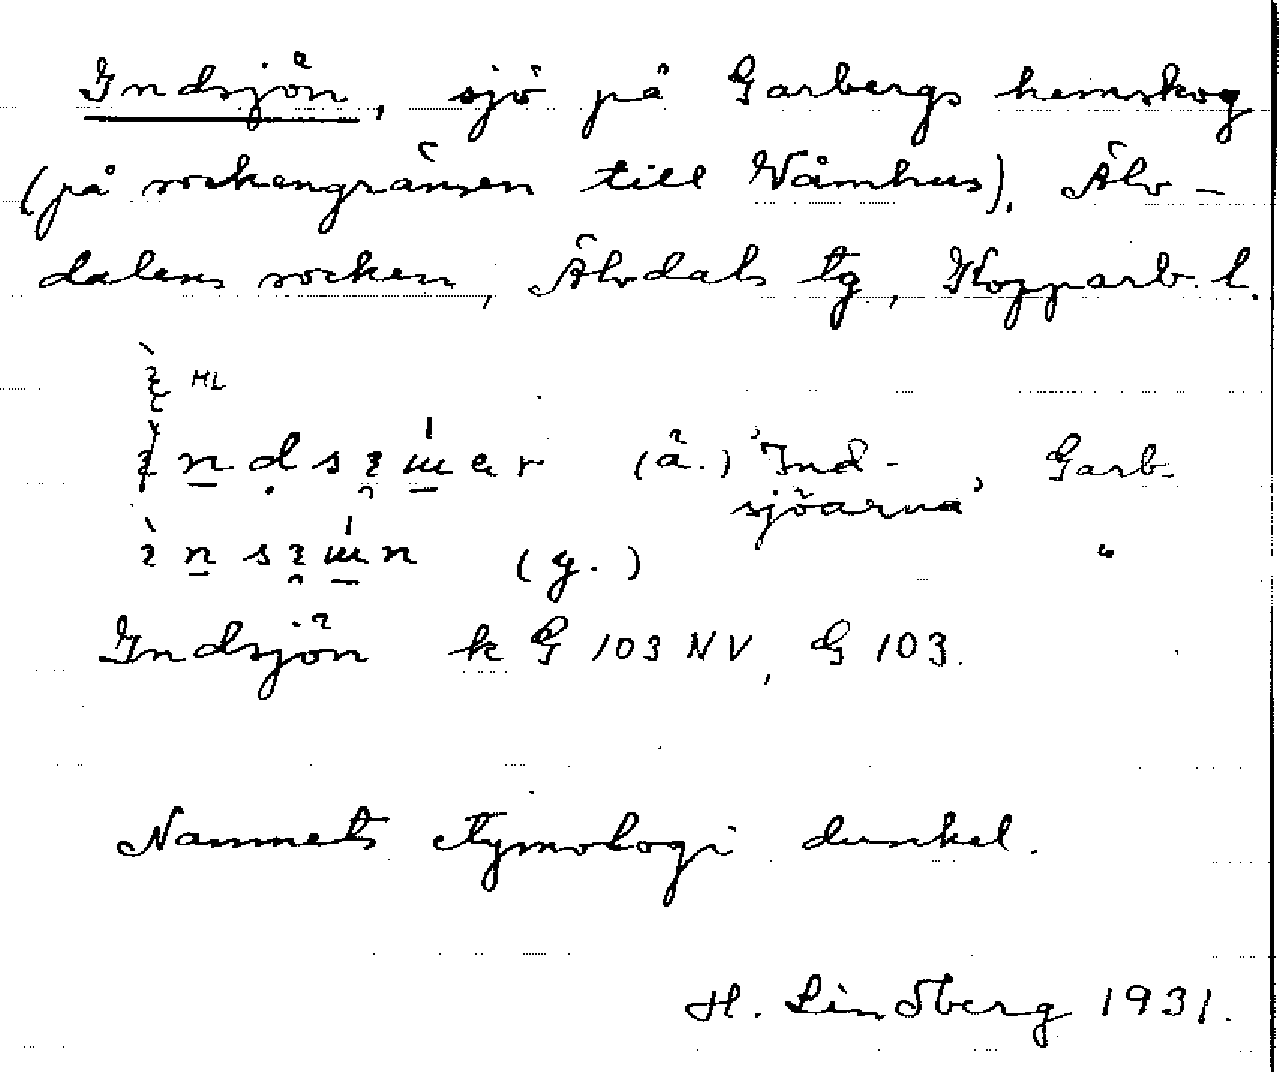 Indsjön, sjö på Garbergs hemskog
(på sockengränsen till Våmhus). Älv-
dalens socken, Älvdals tg, Kopparb. l.
HL
(ä.) 'Ind-
sjöarna', Garb-
(y.) "
Indsjön k G 103 NV, G 103.
Namnets etymologi dunkel.
H. Lindberg 1931.